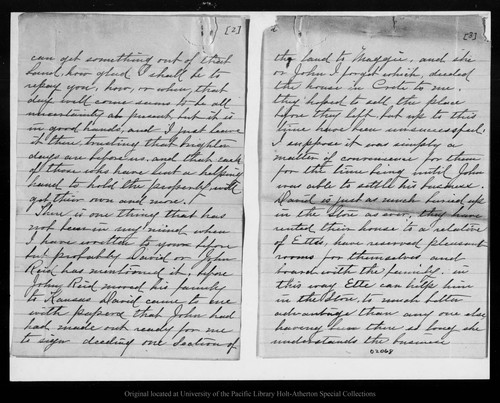 [2]
can get something out of that
land, how glad I shall be to
repay you, how, or when, that
day will come seems to be all
uncertainty at present but it is
in good hands, and I just leave
it there trusting that brighter
days are before us, and that each
of those who have lent a helping
hand to hold the property will
get their own and more.
There is one thing that has
not been in my mind when
I have written to you before
but probably David or John
Reid has mentioned it, before
John Reid moved his family
to Kansas David came to me
with papers that John had
had made out ready for me
to sign deeding one section of
[3]
the land to Maggie, and she
or John I forget which, deeded
the house in Crete to me.
they hoped to sell the place
before they left but up to this
time have been unsuccessful.
I suppose it was simply a
matter of convenience for them
for the time being until John
was able to settle his business.
David is just as much tied up
in the store as ever, they have
rented their house to a relative
of Ettas, have reserved pleasant
rooms for themselves and
board with the family. in
this way Etta can help him
in the Store, to much better
advantage than any one else
having been there so long she
understands the business
02068
Original located at University of the Pacific Library Holt-Atherton Special Collections